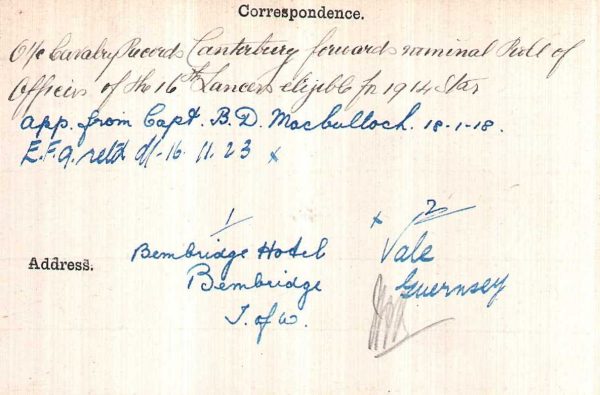 Correspondence.
O i/c Cavalry Records Canterbury forwards nominal Roll of
Officers of the 16th Lancers eligible for 1914 Star
app. from Capt. B. D. Macculloch. 18-1-18.
E.F.9. retd d/- 16. 11. 23 x
1
x 2
Address.
Bembridge Hotel
Bembridge
I. of W.
Vale
Guernsey